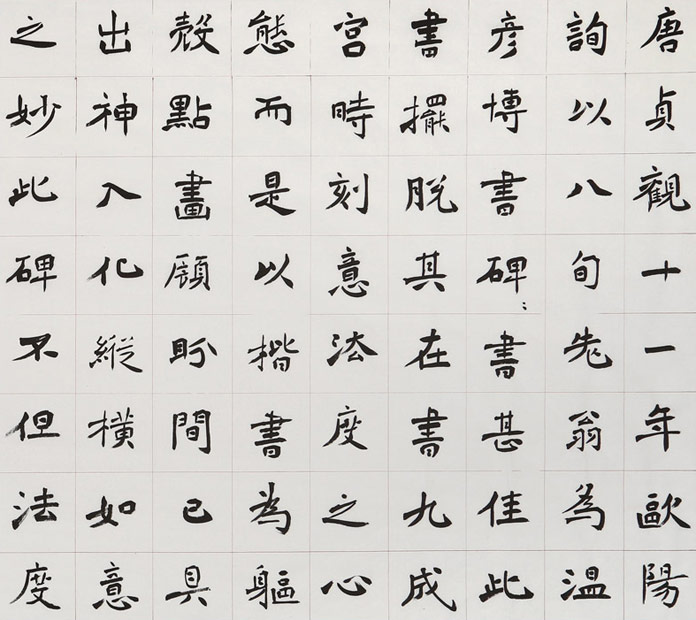 唐貞觀十一年歐陽
詢以八旬先翁為溫
彥博書碑書甚佳此
書擺脫其在書九成
宮時刻意法度之心
態而是以楷書為軀
殼點畫顧盼間已具
出神入化縱橫如意
之妙此碑不但法度